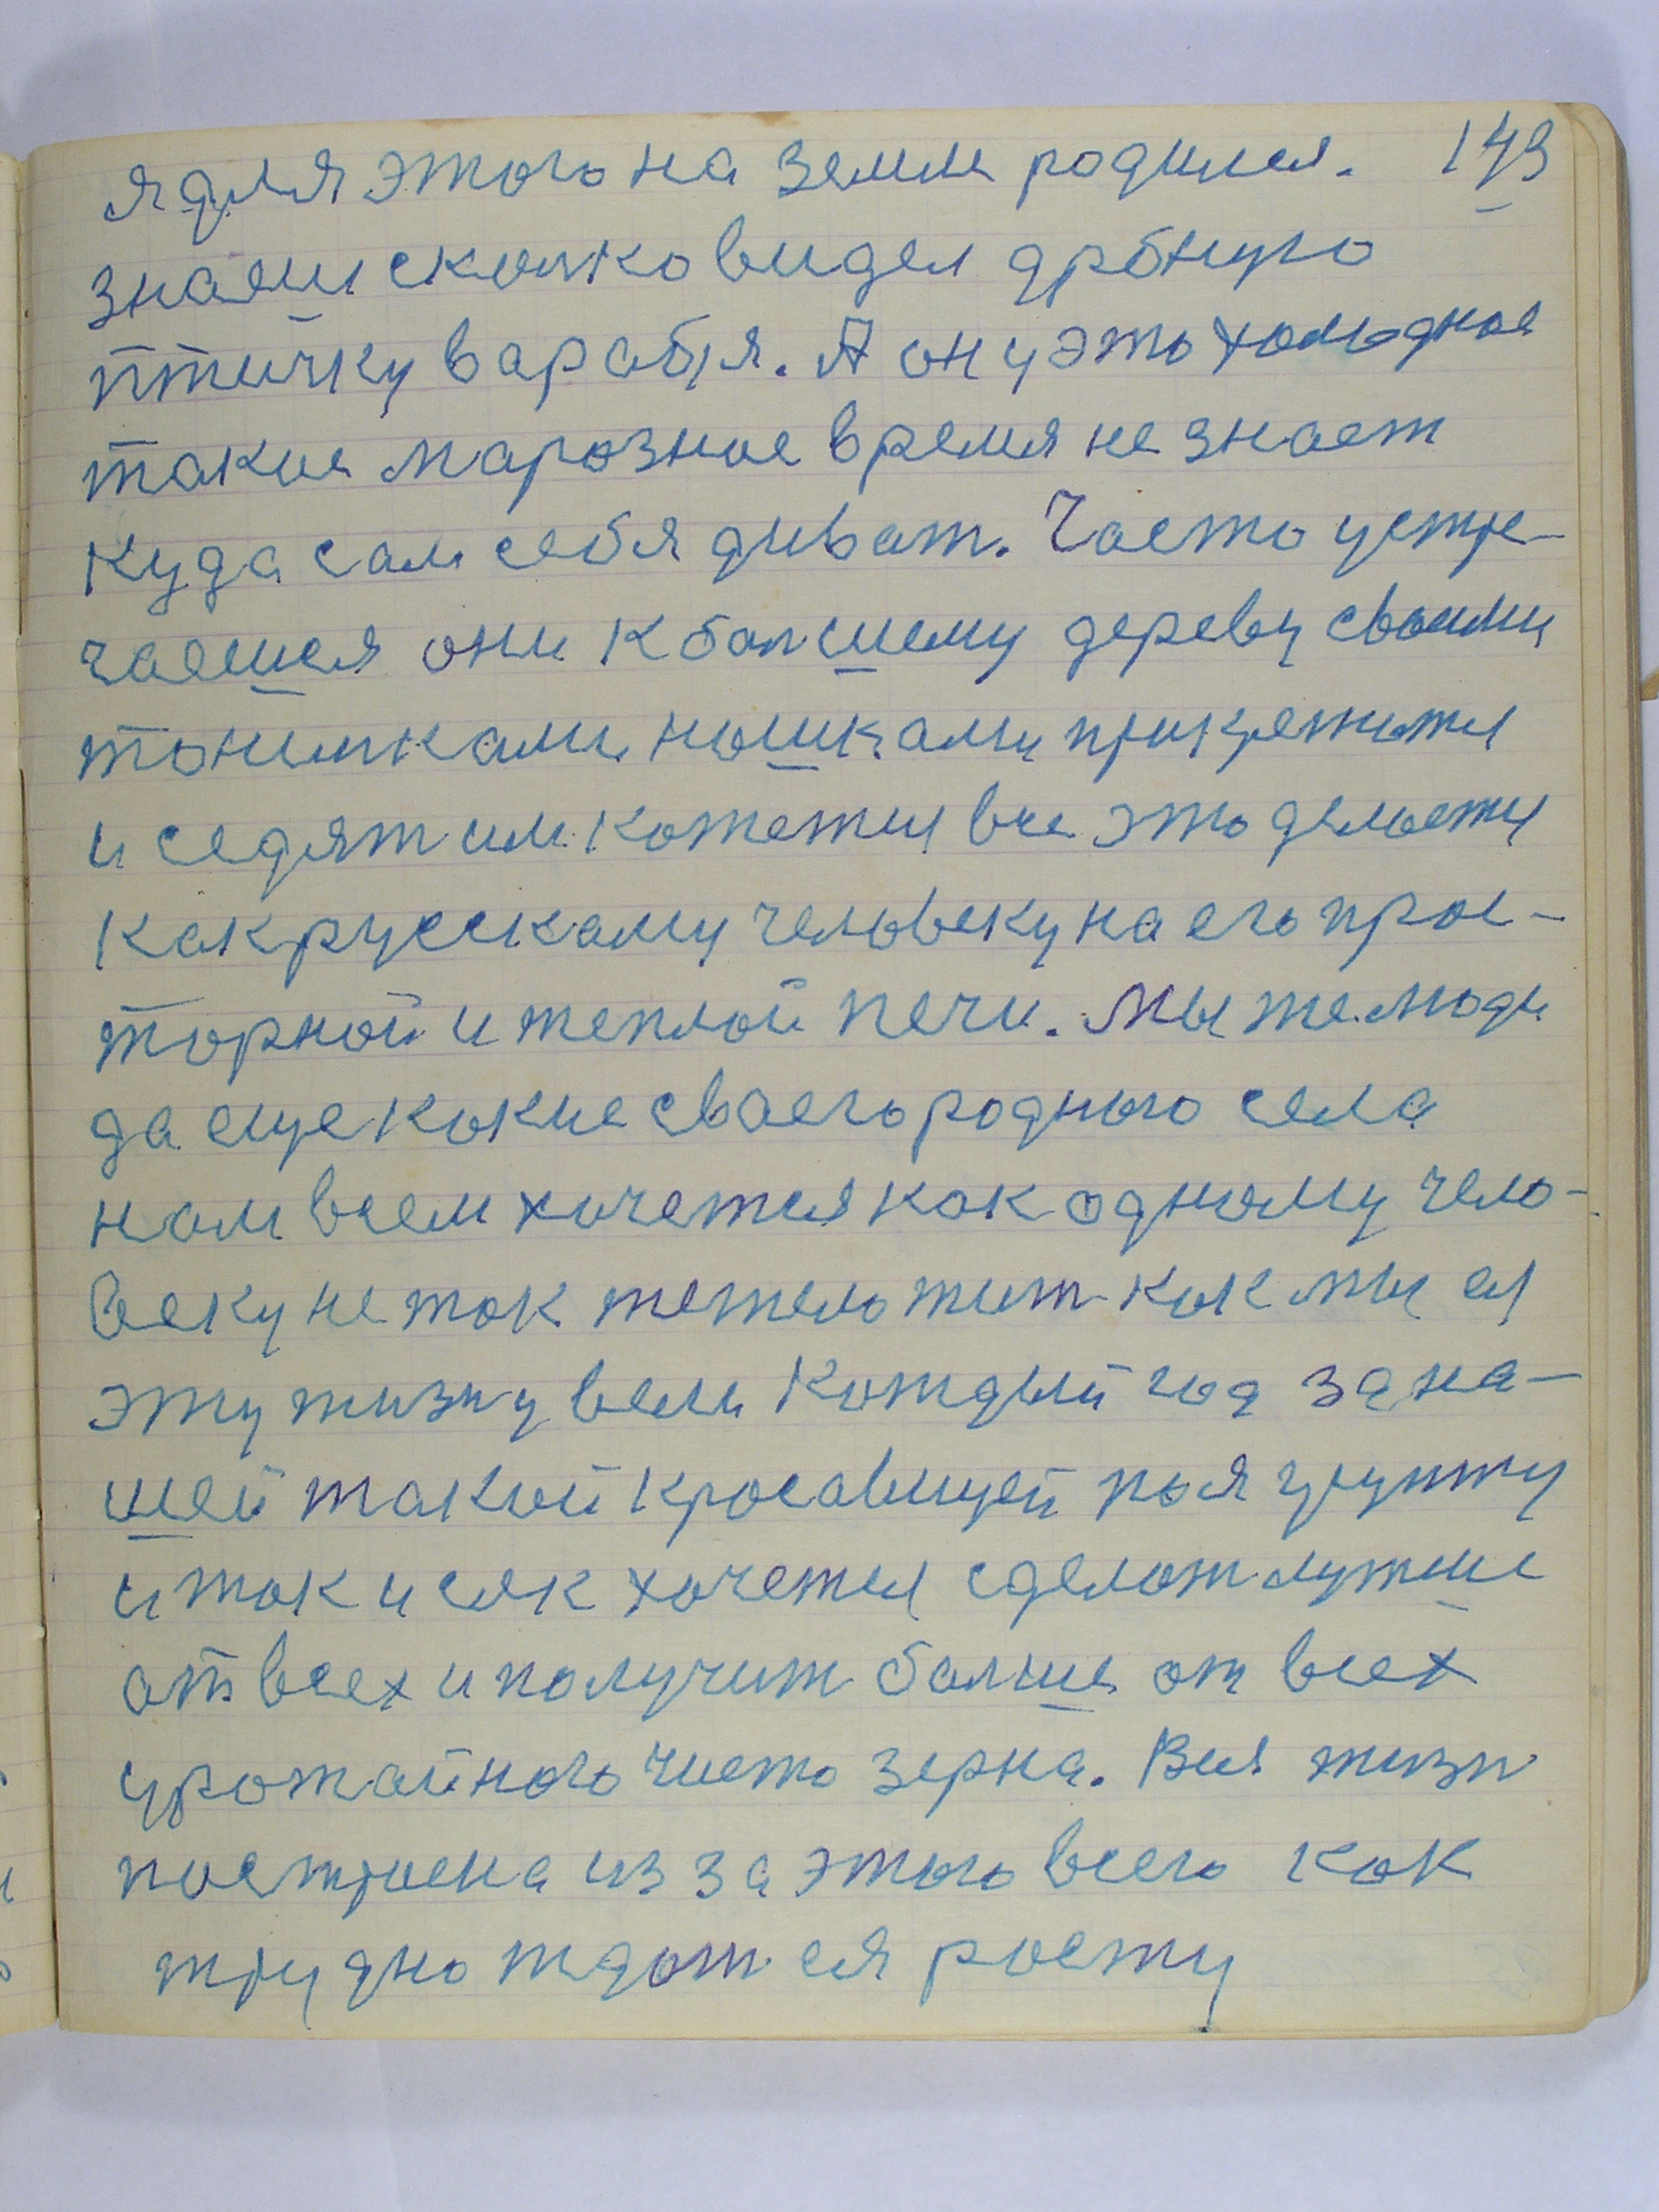 я для этого на земле родился. 143
знаеш сколко видел дробную
птичку варабя. А он у это холодное
такое марозное время не знает
куда сам себя диват. Часто устре-
чаешся они к болшему дереву своими
тонинками ношками прикрепится
и седят им кажется все это делается
как русскаму человеку на его прос-
торной и теплой печи. Мы же люди
да еще какие сваего родного села
нам всем хочется как одному чело-
веку не так тежело жит как мы ся
эту жизну вели Каждый год за на-
шей такой красавицей поя групту
и так и сяк хочется сделат лутше
от всех и получит болше от всех
урожайного чисто зерна. Вся жизн
построена из за этого всего как
трудно ждат ся росту